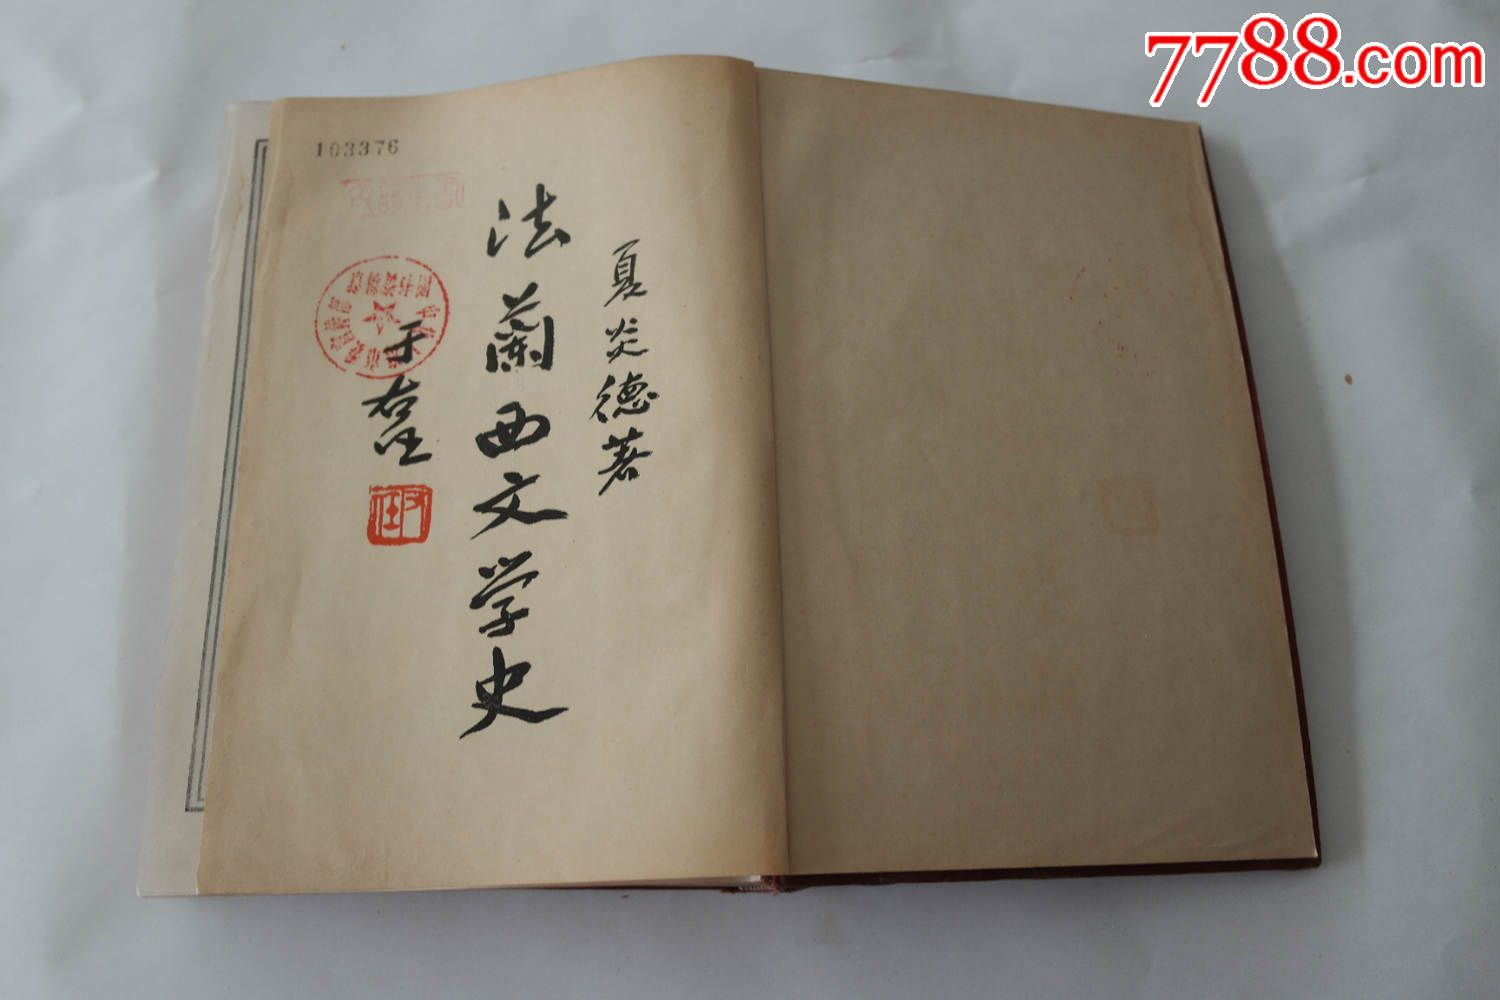 7788.com
103376
夏炎德著
法蘭西文学史
于右任
右任